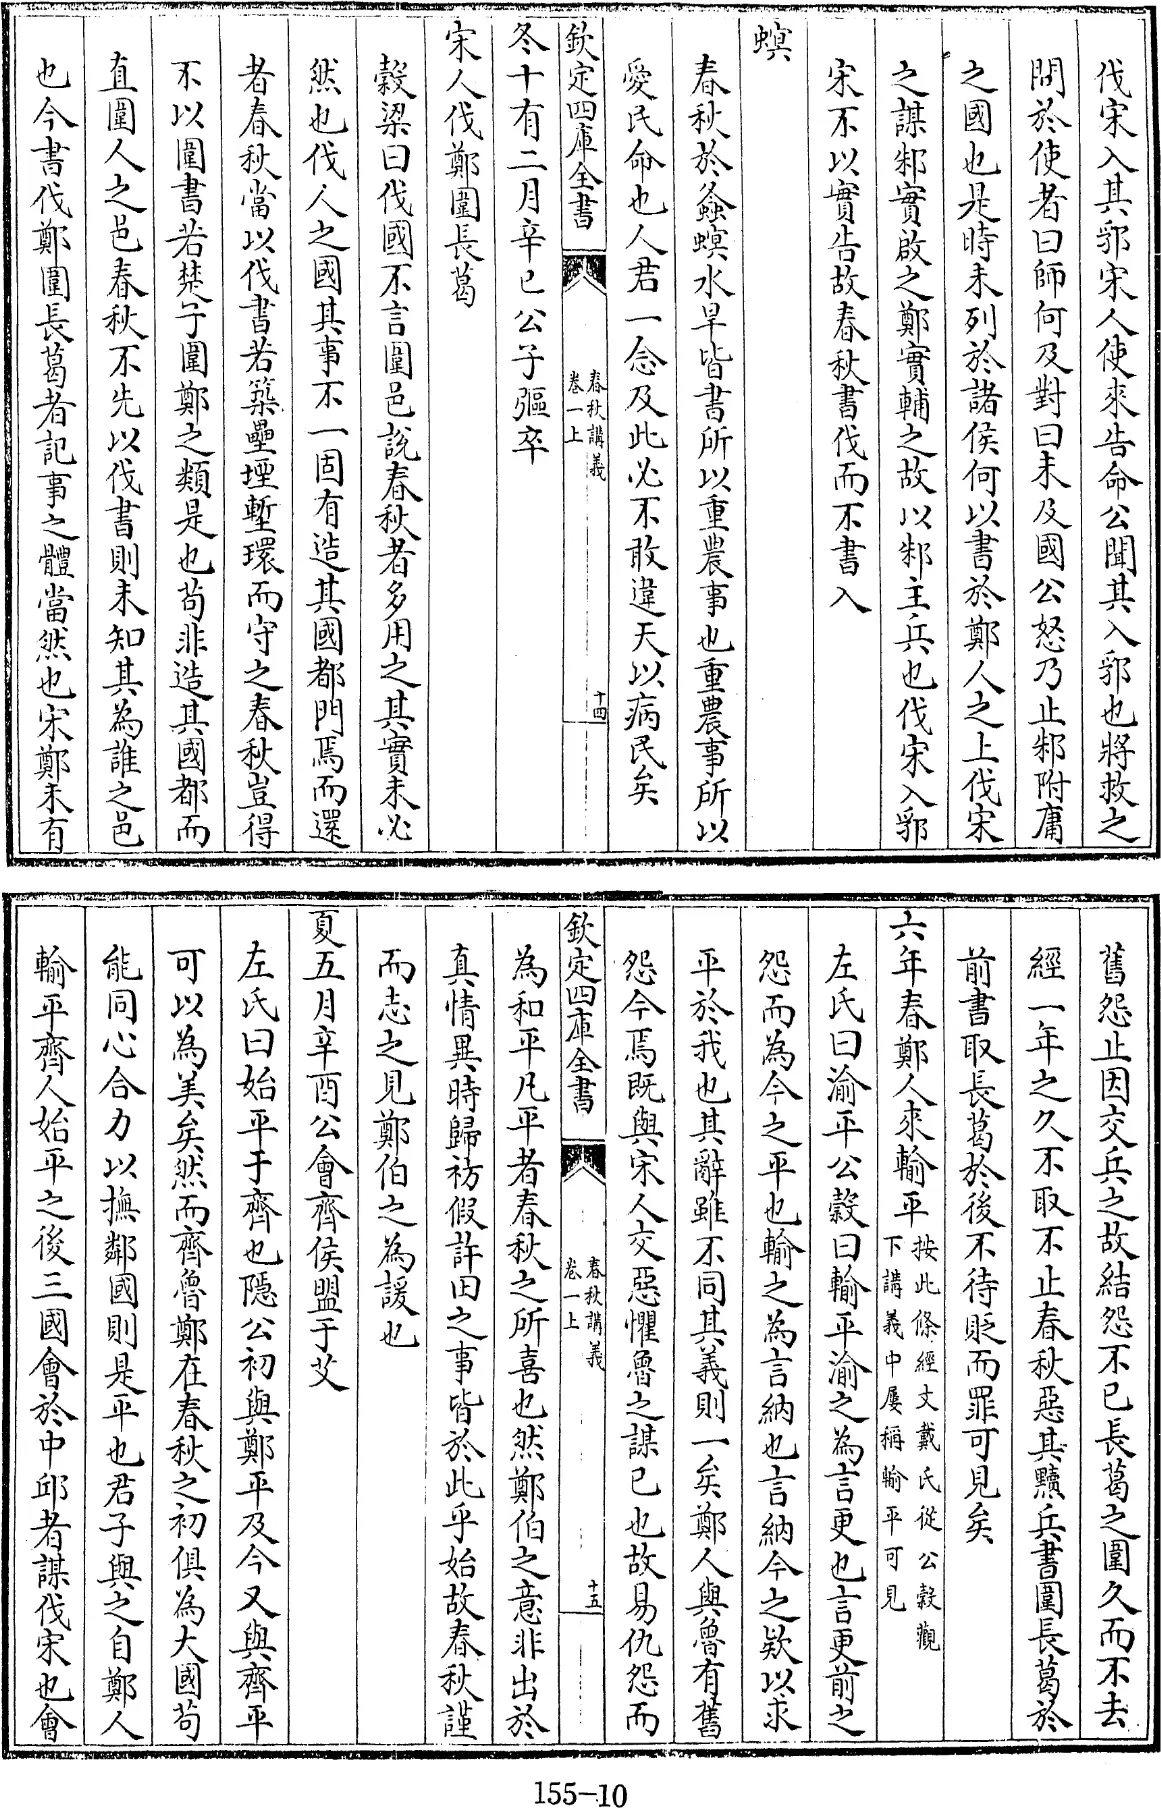 伐宋入其郛宋人使來告命公聞其入郛也將救之
問於使者曰師何及對曰未及國公怒乃止邾附庸
之國也是時未列於諸侯何以書於鄭人之上伐宋
之謀邾實啟之鄭實輔之故以邾主兵也伐宋入郛
宋不以實告故春秋書伐而不書入
螟
春秋於螽螟水旱皆書所以重農事也重農事所以
愛民命也人君一念及此必不敢違天以病民矣
欽定四庫全書
春秋講義
卷一上
十四
冬十有二月辛巳公子彄卒
宋人伐鄭圍長葛
穀梁曰伐國不言圍邑說春秋者多用之其實未必
然也伐人之國其事不一固有造其國都門焉而還
者春秋當以伐書若築壘堙塹環而守之春秋豈得
不以圍書若楚子圍鄭之類是也茍非造其國都而
直圍人之邑春秋不先以伐書則未知其為誰之邑
也今書伐鄭圍長葛者記事之體當然也宋鄭未有
舊怨止因交兵之故結怨不已長葛之圍久而不去
經一年之久不取不止春秋惡其黷兵書圍長葛於
前書取長葛於後不待貶而罪可見矣
六年春鄭人來輸平
按此條經文戴氏從公穀觀
下講義中屢稱輸平可見
左氏曰渝平公穀曰輸平渝之為言更也言更前之
怨而為今之平也輸之為言納也言納今之欵以求
平於我也其辭雖不同其義則一矣鄭人與魯有舊
怨今焉既與宋人交惡懼魯之謀已也故易仇怨而
欽定四庫全書
春秋講義
卷一上
十五
為和平凡平者春秋之所喜也然鄭伯之意非出於
真情異時歸祊假許田之事皆於此乎始故春秋謹
而志之見鄭伯之為諼也
夏五月辛酉公會齊侯盟于艾
左氏曰始平于齊也隱公初與鄭平及今又與齊平
可以為美矣然而齊魯鄭在春秋之初俱為大國茍
能同心合力以撫鄰國則是平也君子與之自鄭人
輸平齊人始平之後三國會於中邱者謀伐宋也會
155-10